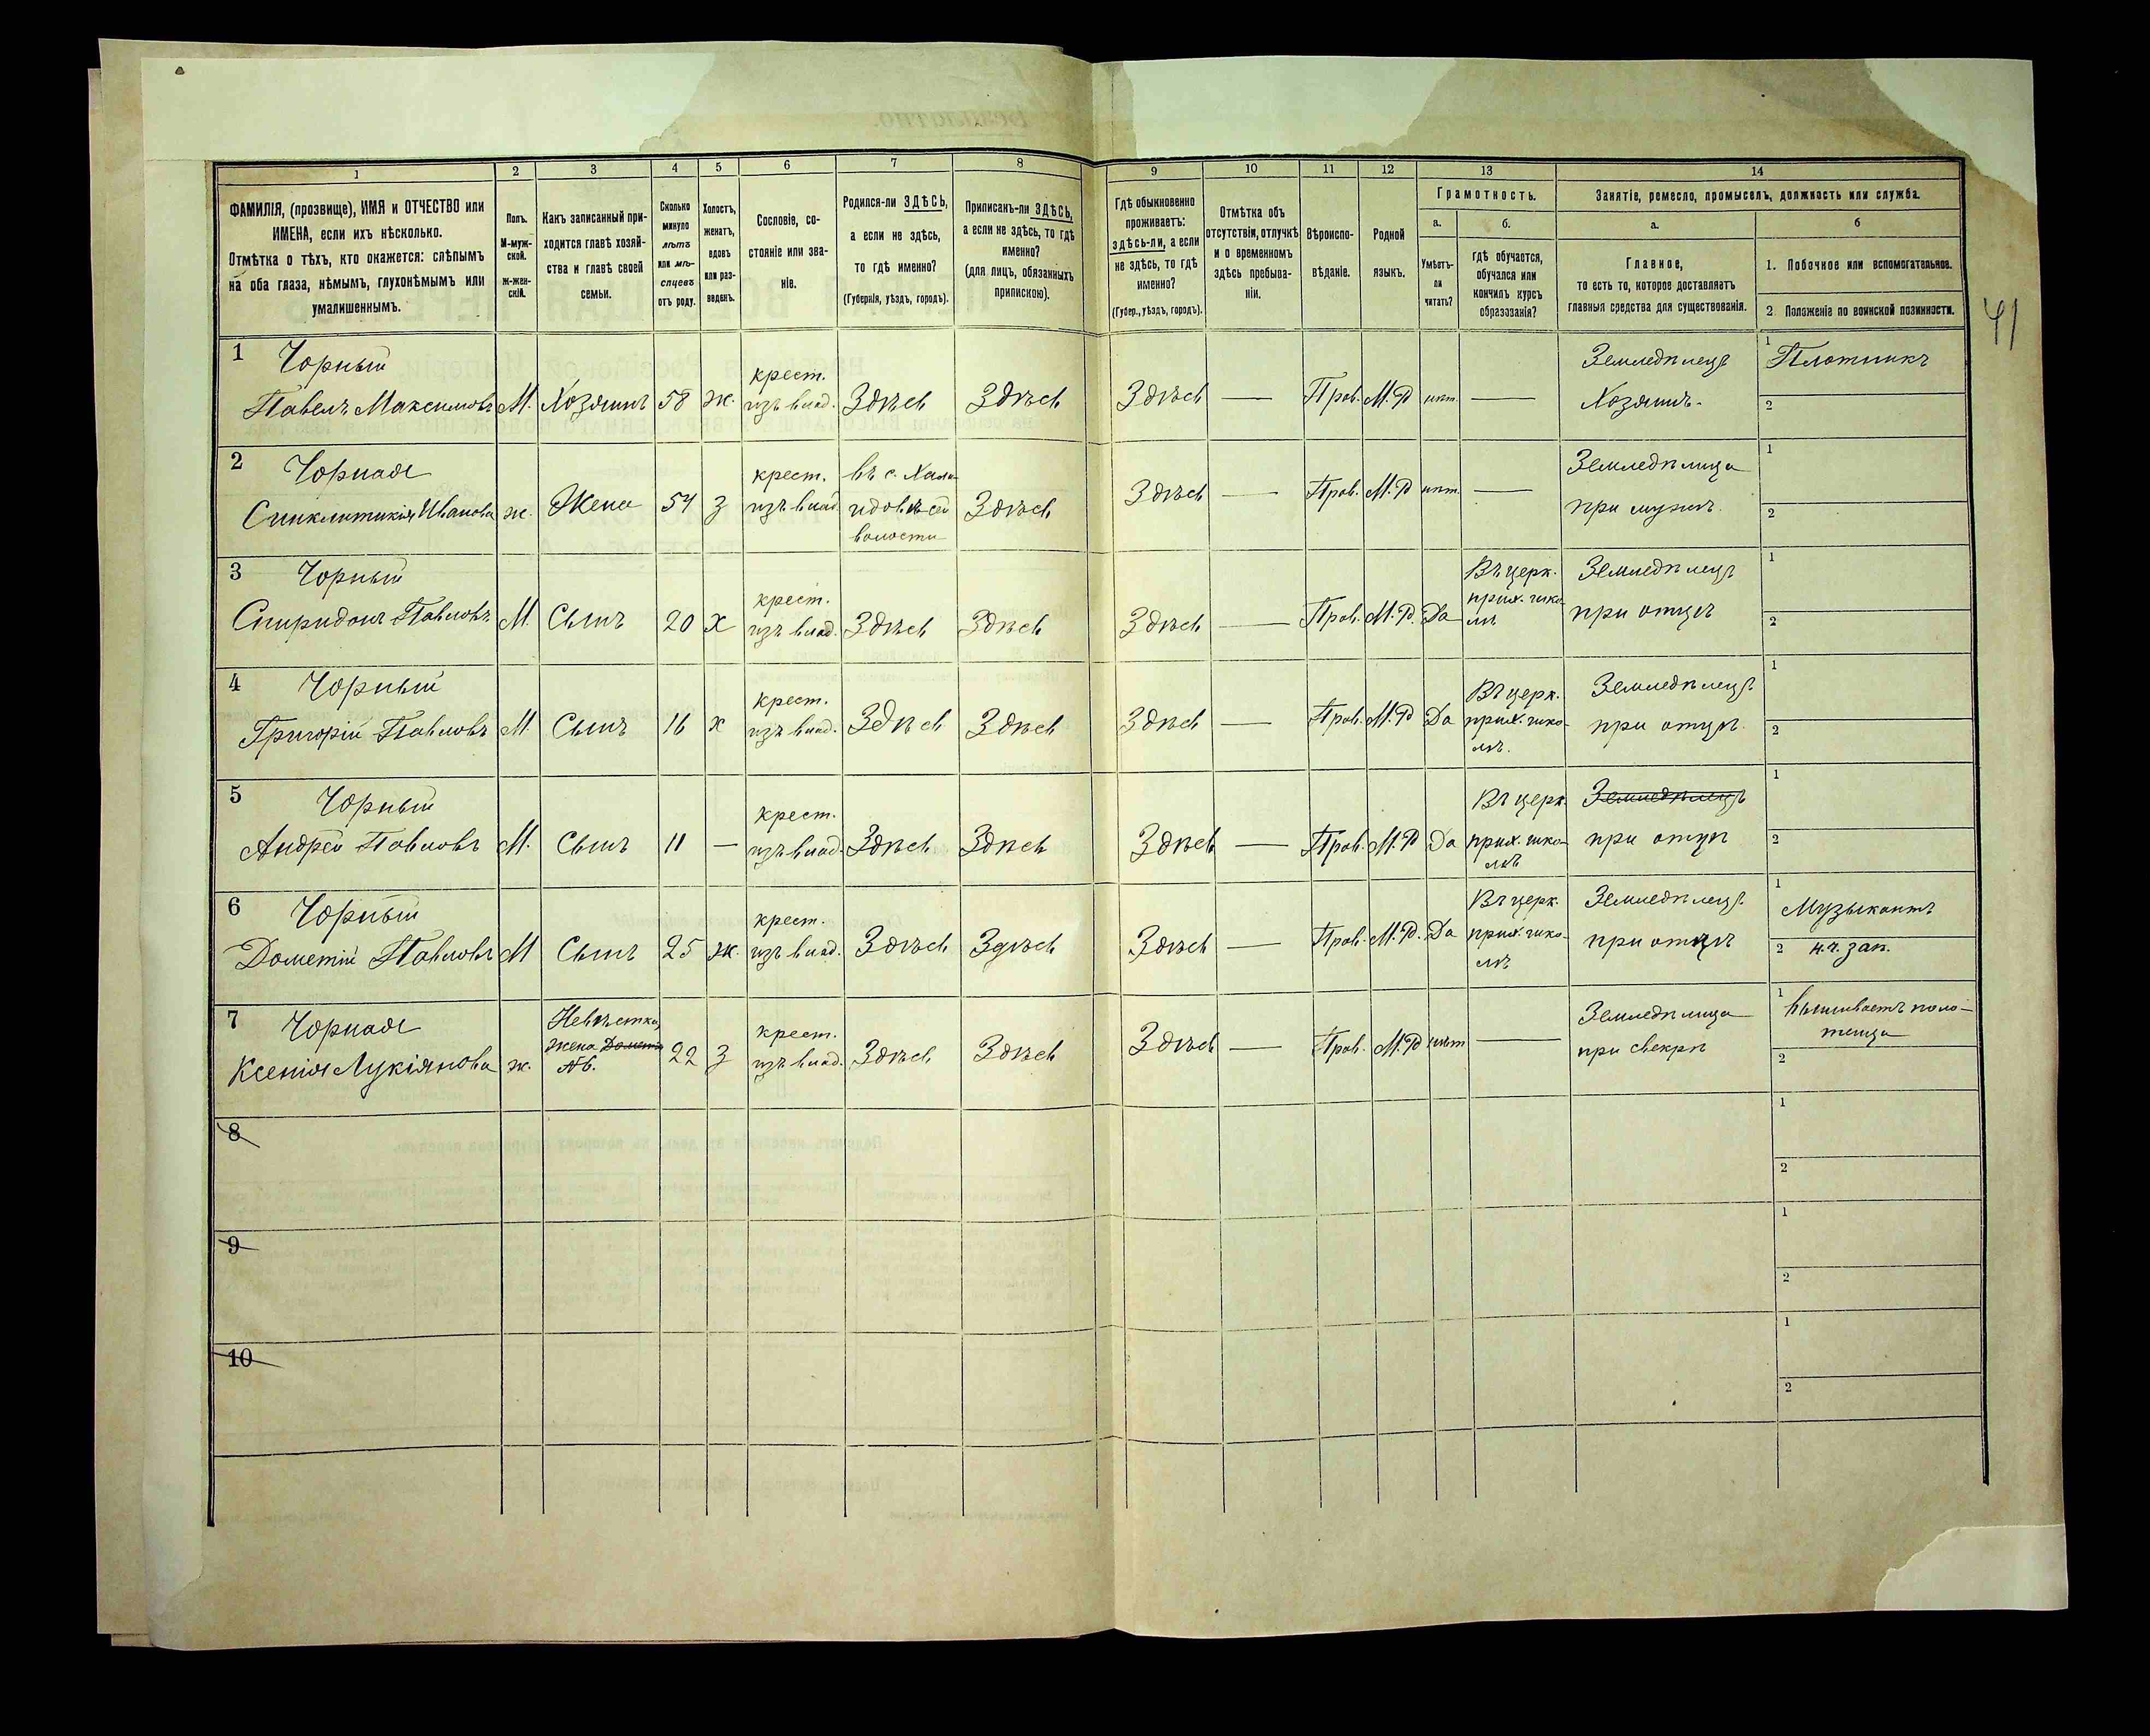 41
1 2 3 4 5 6 7 8 9 10 11 12 13 14
ФАМИЛІЯ, (прозвище), ИМЯ и ОТЧЕСТВО или
ИМЕНА, если ихъ нѣсколько.
Отмѣтка о тѣхъ, кто окажется: слѣпымъ
на оба глаза, нѣмымъ, глухонѣмымъ или
умалишеннымъ.
Полъ.
М-муж-
ской.
ж-жен-
скій.
Какъ записанный при-
ходится главѣ хозяй-
ства и главѣ своей
семьи.
Сколько
минуло
лѣтъ
или мѣ-
сяцевъ
отъ роду.
Холостъ,
женатъ,
вдовъ
или раз-
веденъ.
Сословіе, со-
стояніе или зва-
ніе.
Родился-ли ЗДѢСЬ,
а если не здѣсь,
то гдѣ именно?
(Губернія, уѣздъ, городъ).
Приписанъ-ли ЗДѢСЬ,
а если не здѣсь, то гдѣ
именно?
(для лицъ, обязанныхъ
припискою).
Гдѣ обыкновенно
проживаетъ:
здѣсь-ли, а если
не здѣсь, то гдѣ
именно?
(Губер., уѣздъ, городъ).
Отмѣтка объ
отсутствіи, отлучкѣ
и о временномъ
здѣсь пребыва-
ніи.
Вѣроиспо-
вѣданіе.
Родной
языкъ.
Грамотность.
а.
Умѣетъ-
ли
читать?
б.
гдѣ обучается,
обучался или
кончилъ курсъ
образованія?
Занятіе, ремесло, промыселъ, должность или служба.
а.
Главное,
то есть то, которое доставляетъ
главныя средства для существованія.
б
1. Побочное или вспомогательное.
2. Положеніе по воинской повинности.
1 Чорный
Павелъ Максимовъ М. Хозяинъ 58 ж.
крест.
изъ влад.
Здѣсь Здѣсь Здѣсь — Прав. М.Р нѣт. —
Земледѣлецъ
Хозяинъ.
1 Плотникъ
2
2 Чорная
Синклитикія Иванова ж. Жена 54 З
крест.
изъ влад.
въ с.
волости
Здѣсь Здѣсь — Прав. М.Р нѣт. —
Земледѣлица
при мужѣ.
1
2
3 Чорный
Спиридонъ Павловъ М. Сынъ 20 Х
крест.
изъ влад.
Здѣсь Здѣсь Здѣсь — Прав. М.Р. Да
Въ церк.
прих. шко-
лѣ
Земледѣлецъ
при отцѣ
1
2
4 Чорный
Григорій Павловъ М. Сынъ 16 х
крест.
изъ влад.
Здѣсь Здѣсь Здѣсь — Прав. М.Р Да
Въ церк.
прих. шко-
лѣ.
Земледѣлецъ
при отцѣ.
1
2
5 Чорный
Андрей Павловъ М. Сынъ 11 —
крест.
изъ влад.
Здѣсь Здѣсь Здѣсь — Прав. М.Р Да
Въ церк.
прих. шко-
лѣ
Земледѣлецъ
при отцѣ
1
2
6 Чорный
Дометій Павловъ М Сынъ 25 ж.
крест.
изъ влад.
Здѣсь Здѣсь Здѣсь — Прав. М.Р. Да
Въ церк.
прих. шко-
лѣ
Земледѣлецъ.
при отцѣ
1 Музыкантъ
2 н.ч. зап.
7 Чорная
Ксенія Лукіянова ж.
Невѣстка,
жена Дометія
№6.
22 З
крест.
изъ влад.
Здѣсь Здѣсь Здѣсь — Прав. М.Р нѣт —
Земледѣлица
при свекрѣ
1 Вышиваетъ поло-
тенца
2
8
1
2
9
1
2
10
1
2